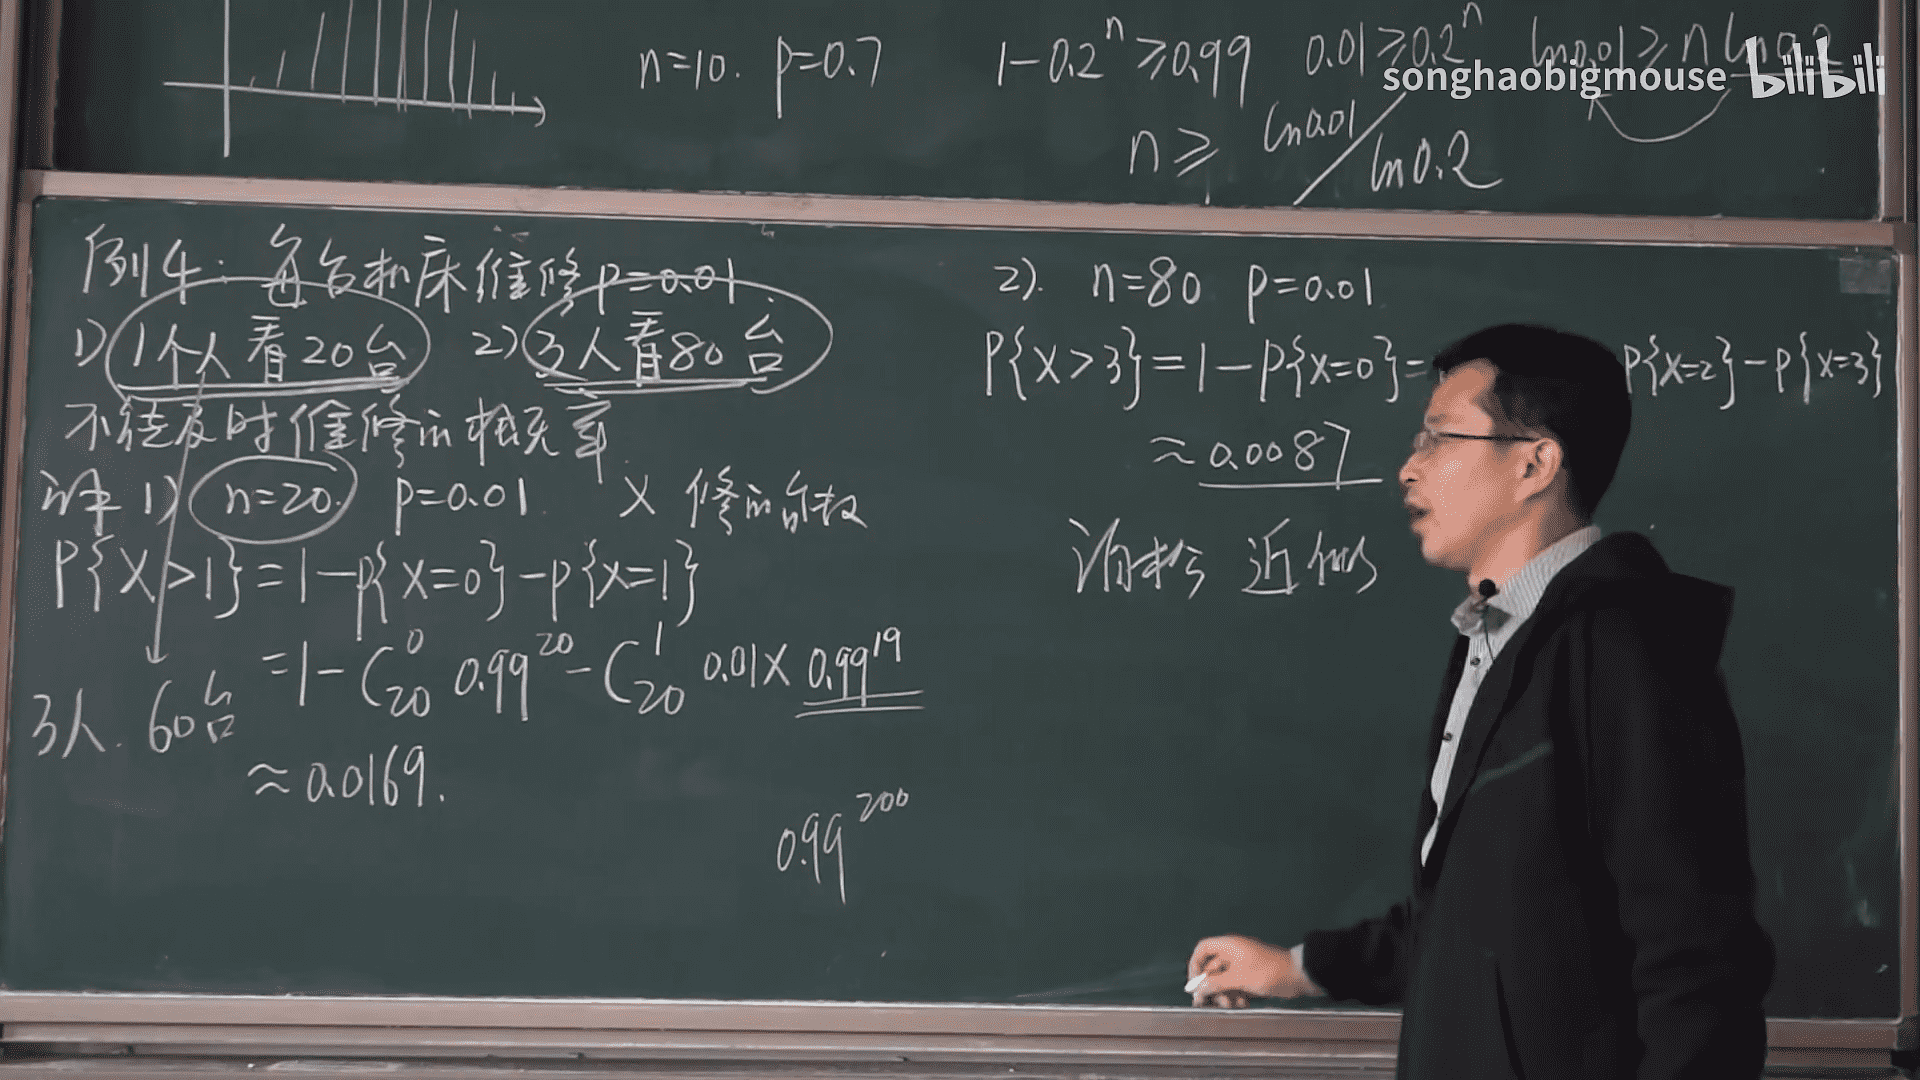 n=10. p=0.7
1-0.2^n ≥0.99 0.01≥0.2^n ln0.01≥n ln0.2
songhaobigmouse bilibili
n≥ ln0.01/ln0.2
例4: 每台机床维修p=0.01.
1) 1个人看20台 2) 3人看80台
不能及时维修的概率.
解 1) n=20. p=0.01 X 修的台数
P{X>1}=1-P{X=0}-P{X=1}
=1-C_20^0 0.99^20-C_20^1 0.01×0.99^19
3人. 60台
≈0.0169.
0.99^200
2). n=80 p=0.01
P{X>3}=1-P{X=0}- P{X=2}-P{X=3}
≈0.0087
泊松 近似